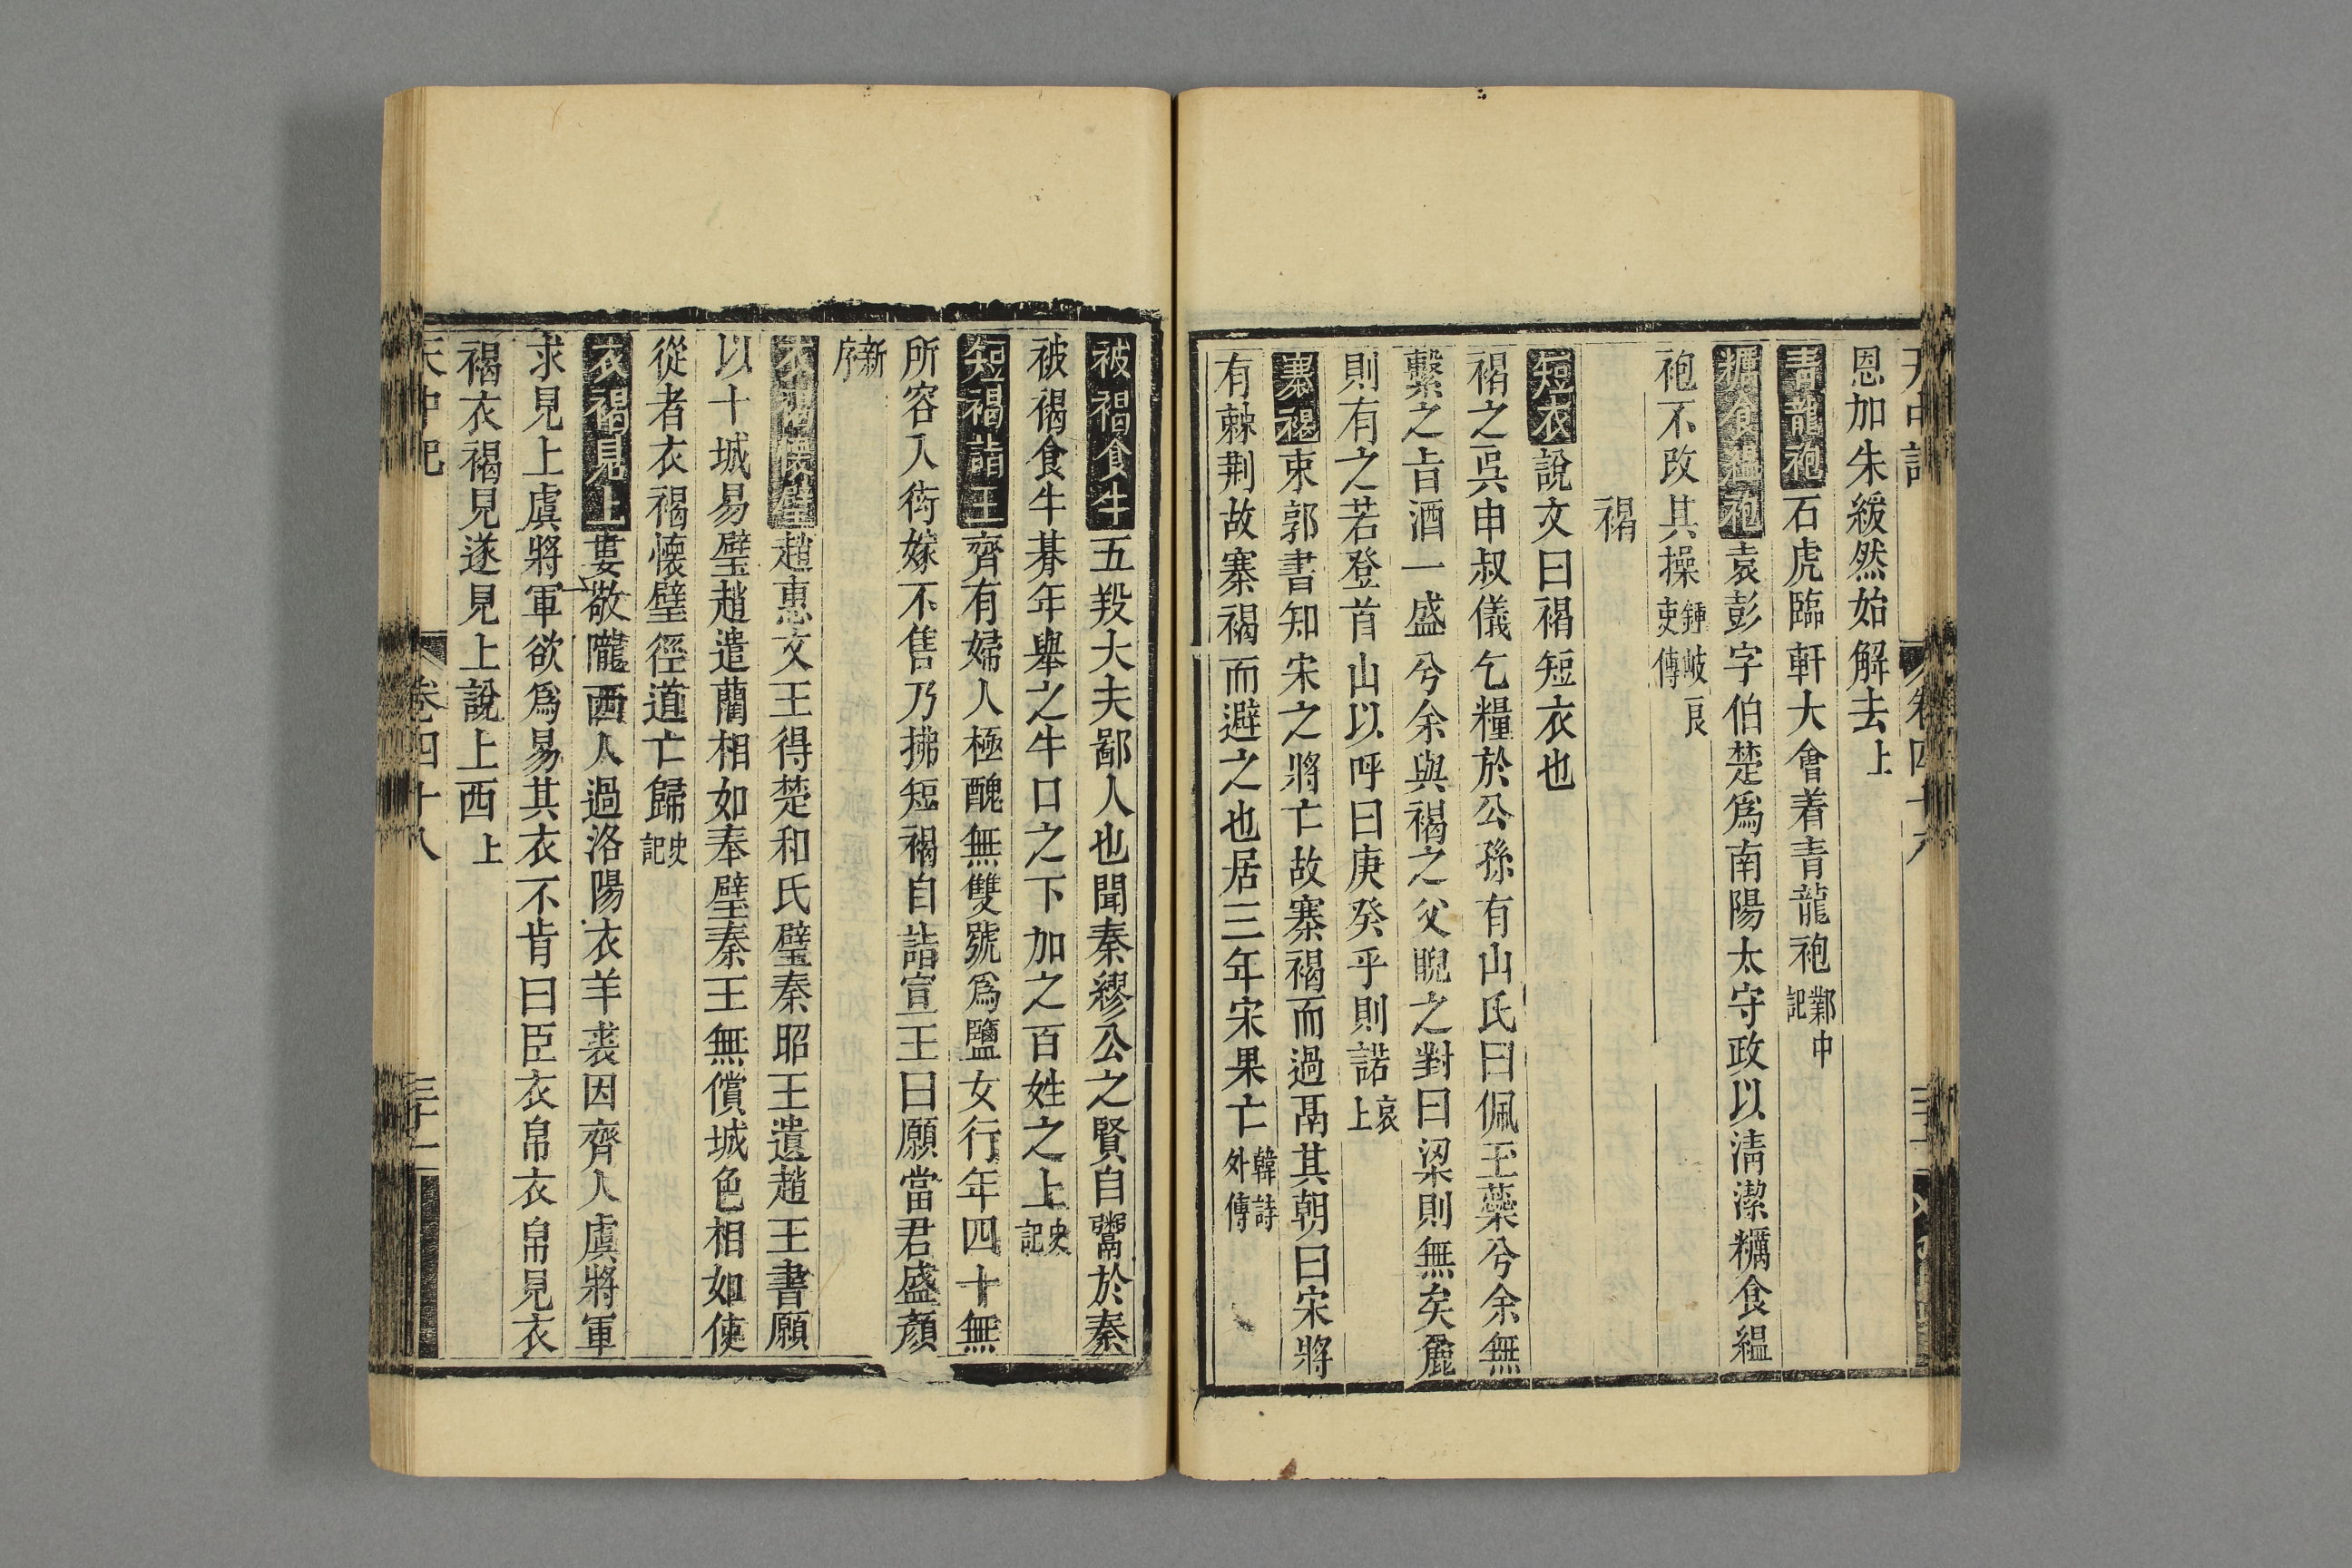 恩加朱緩然始解去上
青龍袍石虎臨軒大會着青龍袍鄴中記
糲食縕袍袁彭字伯楚爲南陽太守政以清潔糲食縕
袍不改其操鍾岏良吏傳
褐
短衣說文曰褐短衣也
褐之吳申叔儀乞糧於公孫有山氏曰佩玉蘂兮余無
繫之旨酒一盛兮余與褐之父睨之對曰梁則無矣麄
則有之若登首山以呼曰庚癸乎則諾哀上
褰褐東郭書知宋之將亡故褰褐而過鬲其朝曰宋將
有棘荆故褰褐而避之也居三年宋果亡韓詩外傳
被褐食牛五羖大夫鄙人也聞秦繆公之賢自鬻於秦
被褐食牛朞年舉之牛口之下加之百姓之上史記
短褐謁王齊有婦人極醜無雙號爲鹽女行年四十無
所容入衒嫁不售乃拂短褐自詣宣王曰願當君盛顏
新序
衣褐懷璧趙惠文王得楚和氏璧秦昭王遺趙王書願
以十城易璧趙遣藺相如奉璧秦王無償城色相如使
從者衣褐懷璧徑道亡歸史記
衣褐見上婁敬隴西人過洛陽衣羊裘因齊人虞將軍
求見上虞將軍欲爲易其衣不肯曰臣衣帛衣帛見衣
褐衣褐見遂見上說上西上
天中記 卷四十八 三十一